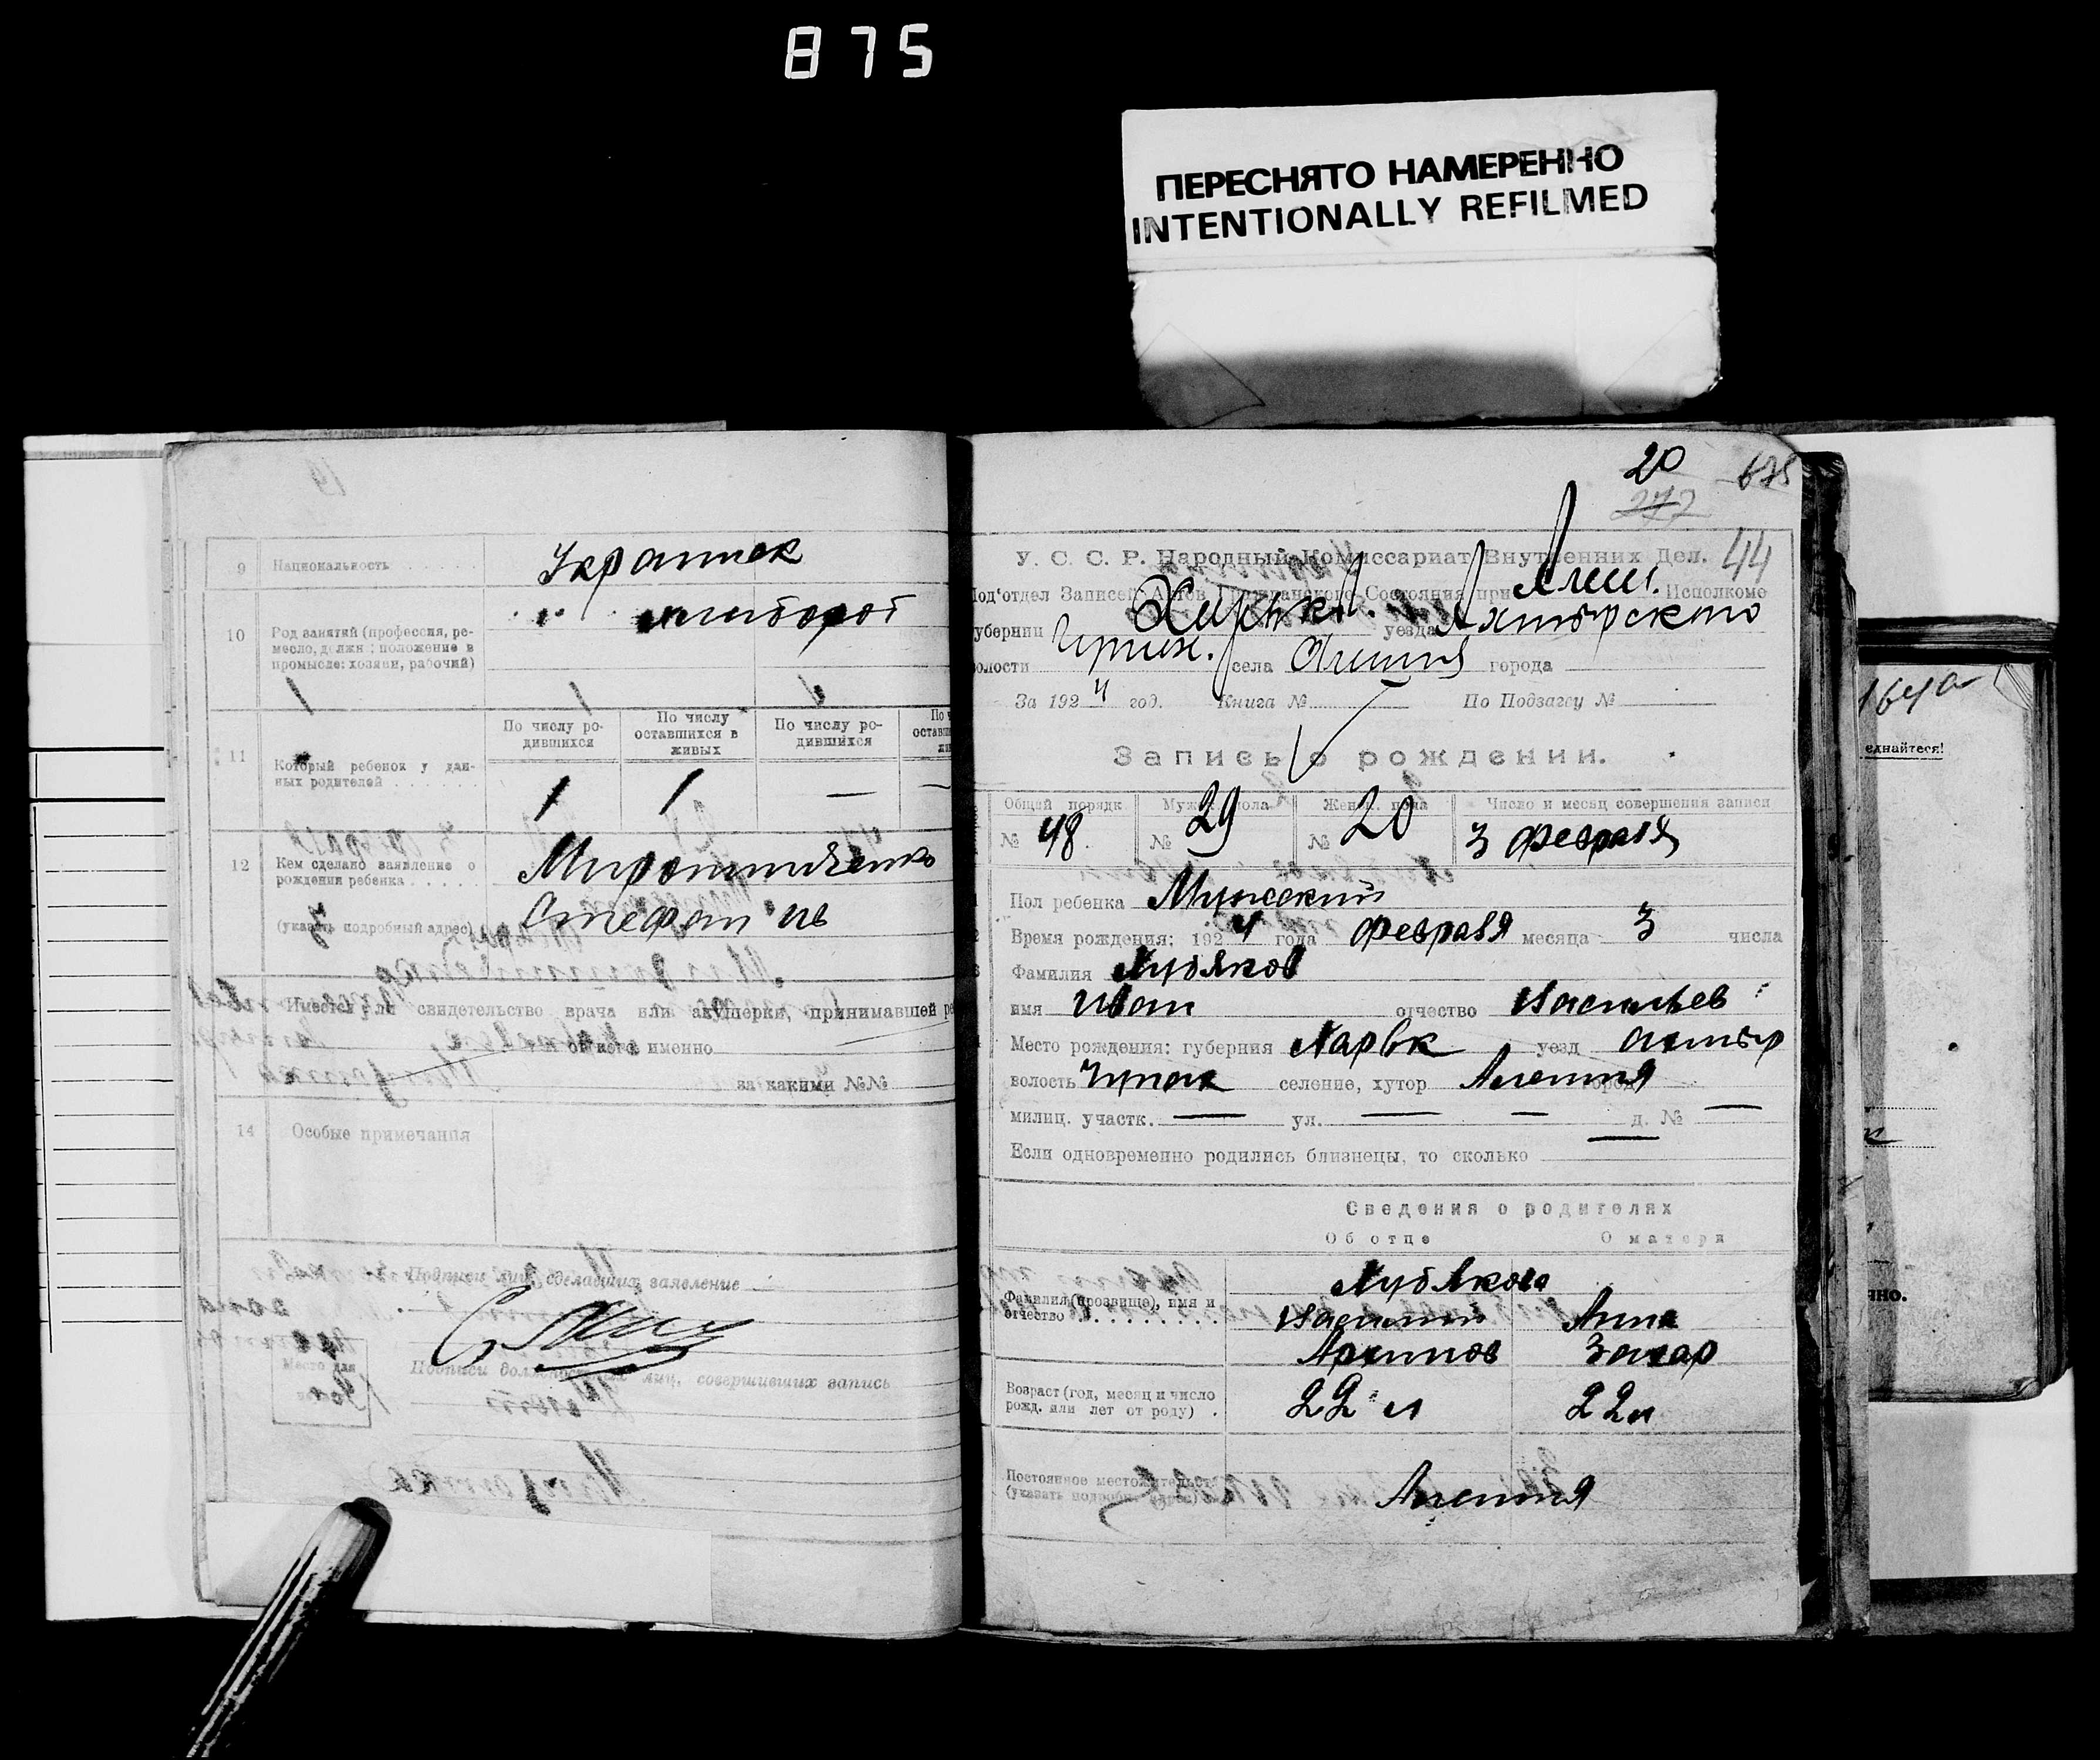 875
ПЕРЕСНЯТО НАМЕРЕННО
INTENTIONALLY REFILMED
9 Национальность Украинск
10 Род занятий (профессия, ре-
месло, должн: положение в
промысле: хозяин, рабочий)
хлебороб
11 Который ребенок у дан-
ных родителей
По числу ро-
дившихся
По числу
оставшихся в
живых
По числу ро-
дившихся
1 1 — —
12 Кем сделано заявление о
рождения ребенка
(указать подробный адрес)
Мирошниченко
Стефан Ив
Имеется ли свидетельство врача или акушерки, принимавшей
от кого именно
за какими №№
14 Особые примечания
Подписи лиц, сделавших заявление
Место для
Подписи должностных лиц, совершивших запись
20 675
277
44
У. С. С. Р. Народный Комиссариат Внутренних Дел.
Под'отдел Записей Актов Гражданского Состояния при Алеш. Исполкоме
губернии Харьк. уезда Ахтырского
волости села Алешня города
За 1924 год. Книга № По Подзагсу №
Запись о рождении.
Общий порядк. Мужск. пола Женск. пола Число и месяц совершения записи
№ 48. № 29 № 20 3 февраля
Пол ребенка Мужеский
Время рождения: 1924 года февраля месяца 3 числа
Фамилия Худяков
имя Иван отчество Васильев
Место рождения: губерния Харьк уезд Ахтыр
волость селение, хутор Алешня
милиц. участк. — ул. — — д. № —
Если одновременно родились близнецы, то сколько —
Сведения о родителях
Об отце О матери
Фамилия (прозвище), имя и
отчество
Худякова
Василий Анна
Архипов Захар
Возраст (год, месяц и число
рожд. или лет от роду)
22 л 22 л
Постоянное местожительст
(указать подробн. адрес)
Алешня
164а
еднайтеся!